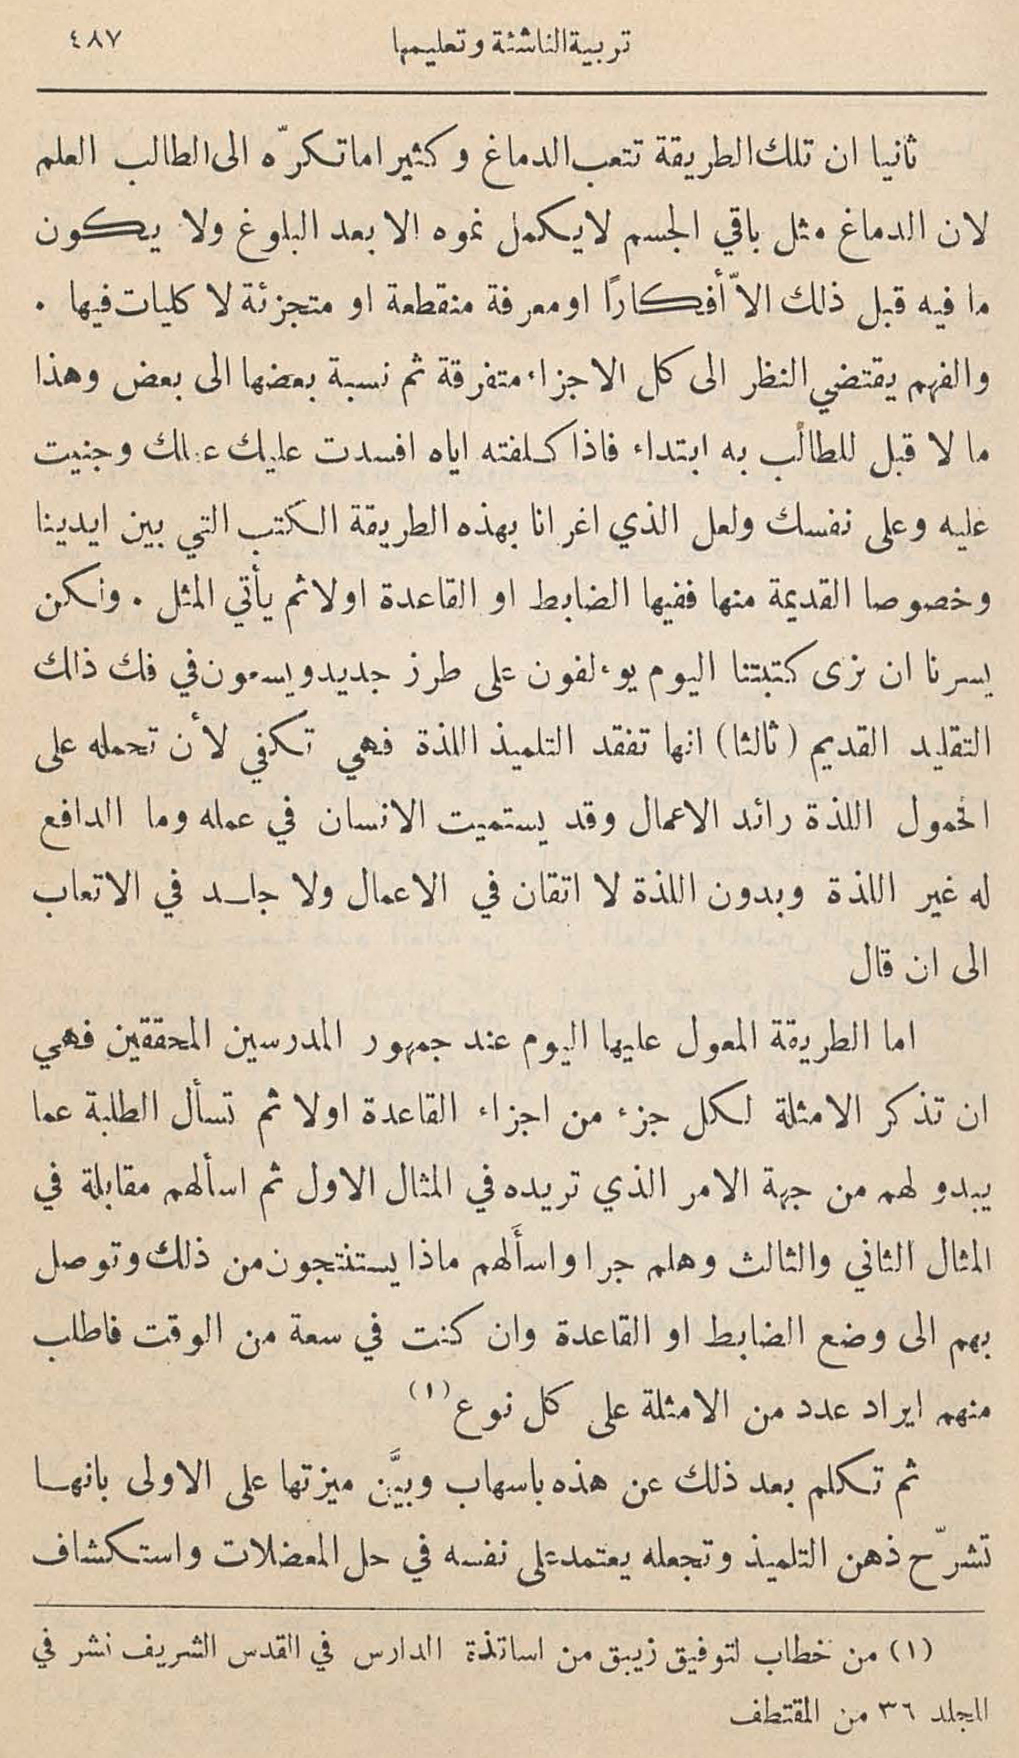 تربية الناشئة وتعليمها ٤٨٧
ثانيا ان تلك الطريقة تتعب الدماغ وكثيرا ما تكرّه الى الطالب العلم
لان الدماغ مثل باقي الجسم لا يكمل نموه الا بعد البلوغ ولا يكون
ما فيه قبل ذلك الاّ أفكارًا او معرفة منقطعة او متجزئة لا كليات فيها .
والفهم يقتضي النظر الى كل الاجزاء متفرقة ثم نسبة بعضها الى بعض وهذا
ما لا قبل للطالب به ابتداء فاذا كلفته اياه افسدت عليك عملك وجنيت
عليه وعلى نفسك ولعل الذي اغرانا بهذه الطريقة الكتب التي بين ايدينا
وخصوصا القديمة منها ففيها الضابط او القاعدة اولا ثم يأتي المثل . ولكن
يسرنا ان نرى كتبتنا اليوم يوءلفون على طرز جديد ويسعون في فك ذلك
التقليد القديم (ثالثا) انها تفقد التلميذ اللذة فهي تكفي لأن تحمله على
الخمول اللذة رائد الاعمال وقد يستميت الانسان في عمله وما الدافع
له غير اللذة وبدون اللذة لا اتقان في الاعمال ولا جلد في الاتعاب
الى ان قال
اما الطريقة المعول عليها اليوم عند جمهور المدرسين المحققين فهي
ان تذكر الامثلة لكل جزء من اجزاء القاعدة اولا ثم تسأل الطلبة عما
يبدو لهم من جهة الامر الذي تريده في المثال الاول ثم اسألهم مقابلة في
المثال الثاني والثالث وهلم جرا واسأَلهم ماذا يستنتجون من ذلك وتوصل
بهم الى وضع الضابط او القاعدة وان كنت في سعة من الوقت فاطلب
منهم ايراد عدد من الامثلة على كل نوع (١)
ثم تكلم بعد ذلك عن هذه باسهاب وبيَّن ميزتها على الاولى بانها
تشرّح ذهن التلميذ وتجعله يعتمد على نفسه في حل المعضلات واستكشاف
(١) من خطاب لتوفيق زيبق من اساتذة الدارس في القدس الشريف نشر في
المجلد ٣٦ من المقتطف